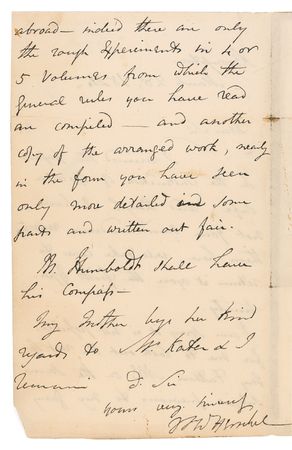 abroad — indeed there are only
the rough Experiments in 4 or
5 Volumes from which the
general rules you have read
are compiled — and another
copy of the arranged work, nearly
in the form you have seen
only more detailed in some
parts and written out fair.
M. Humboldt shall have
his Compass —
My Mother begs her kind
regards to Mr. Kater & I
remain d. Sir
yours very sincerely
J F W Herschel